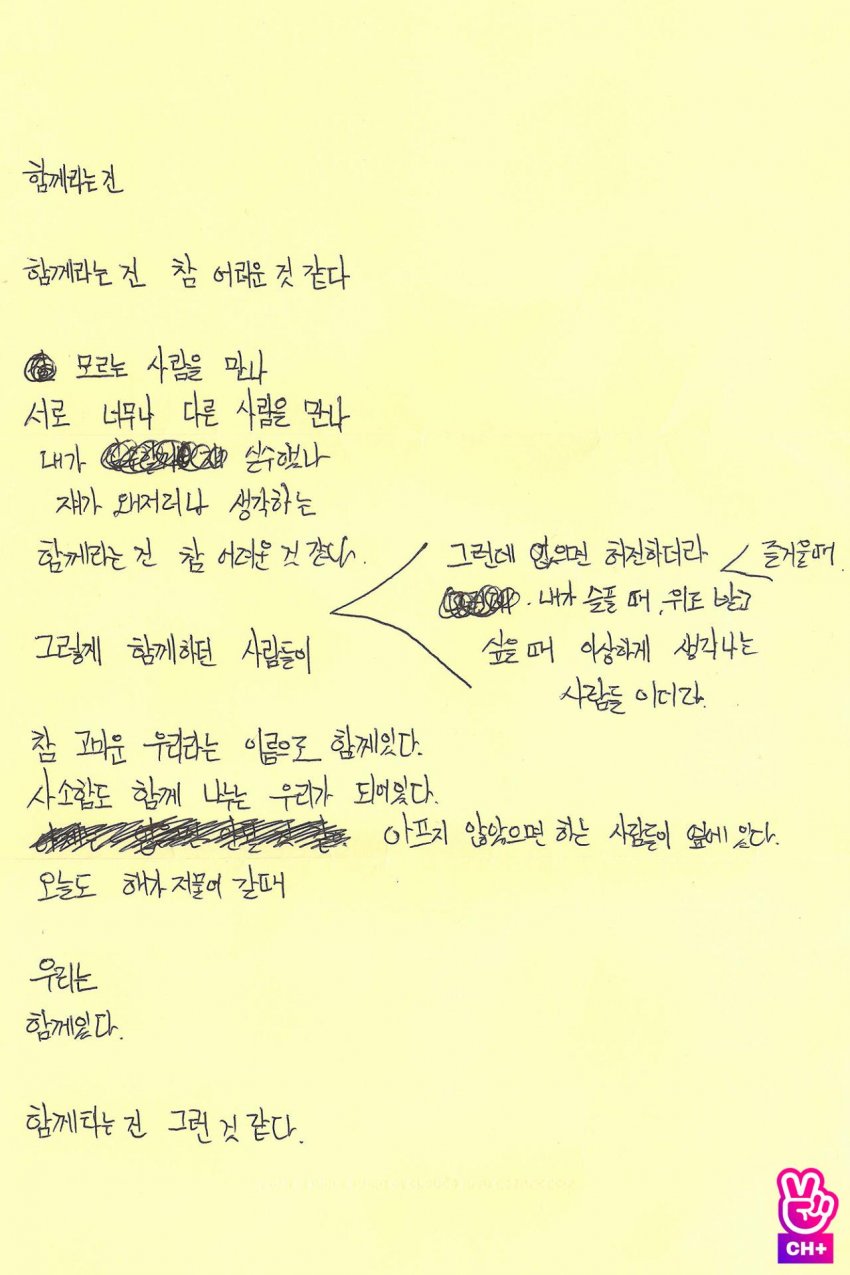 함께라는건
함께라는건 참 어려운 것 같다
모르는 사람을 만나
서로 너무나 다른 사람을 만나
내가 실수했나
쟤가 왜저러나 생각하는
함께라는 건 참 어려운 것 같다.
그런데 없으면 허전하더라
즐거울때.
내가 슬플 때, 위로 받고
싶을때 이상하게 생각나는
사람들 이더라.
그렇게 함께하던 사람들이
참 고마운 우리라는 이름으로 함께있다.
사소함도 함께 나누는 우리가 되어있다.
아프지 않았으면 하는 사람들이 옆에 있다.
오늘도 해가 저물어 갈때
우리는
함께있다.
함께라는 건 그런 것 같다.
CH+